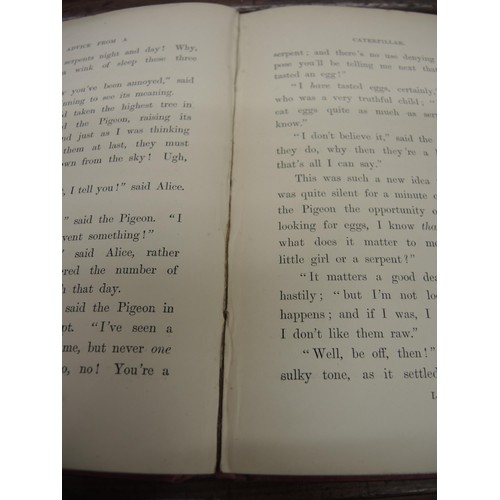 ADVICE FROM A
serpents night and day! Why,
wink of sleep these three
you've been annoyed," said
nning to see its meaning.
taken the highest tree in
d the Pigeon, raising its
and just as I was thinking
them at last, they must
own from the sky! Ugh,
, I tell you!" said Alice.
" said the Pigeon. "I
vent something!"
" said Alice, rather
ered the number of
h that day.
said the Pigeon in
pt. "I've seen a
me, but never one
o, no! You're a
CATERPILLAR.
serpent; and there's no use denying
pose you'll be telling me next that
tasted an egg!"
"I have tasted eggs, certainly,"
who was a very truthful child; "
eat eggs quite as much as ser
know."
"I don't believe it," said the
they do, why then they're a
that's all I can say."
This was such a new idea
was quite silent for a minute
the Pigeon the opportunity o
looking for eggs, I know tha
what does it matter to m
little girl or a serpent?"
"It matters a good dea
hastily; "but I'm not loo
happens; and if I was, I
I don't like them raw."
"Well, be off, then!"
sulky tone, as it settled